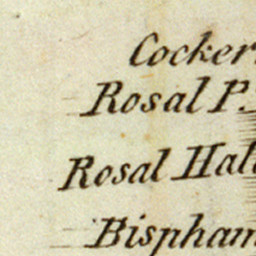 Cocker
Rosal P.
Rosal Hall
Bispham